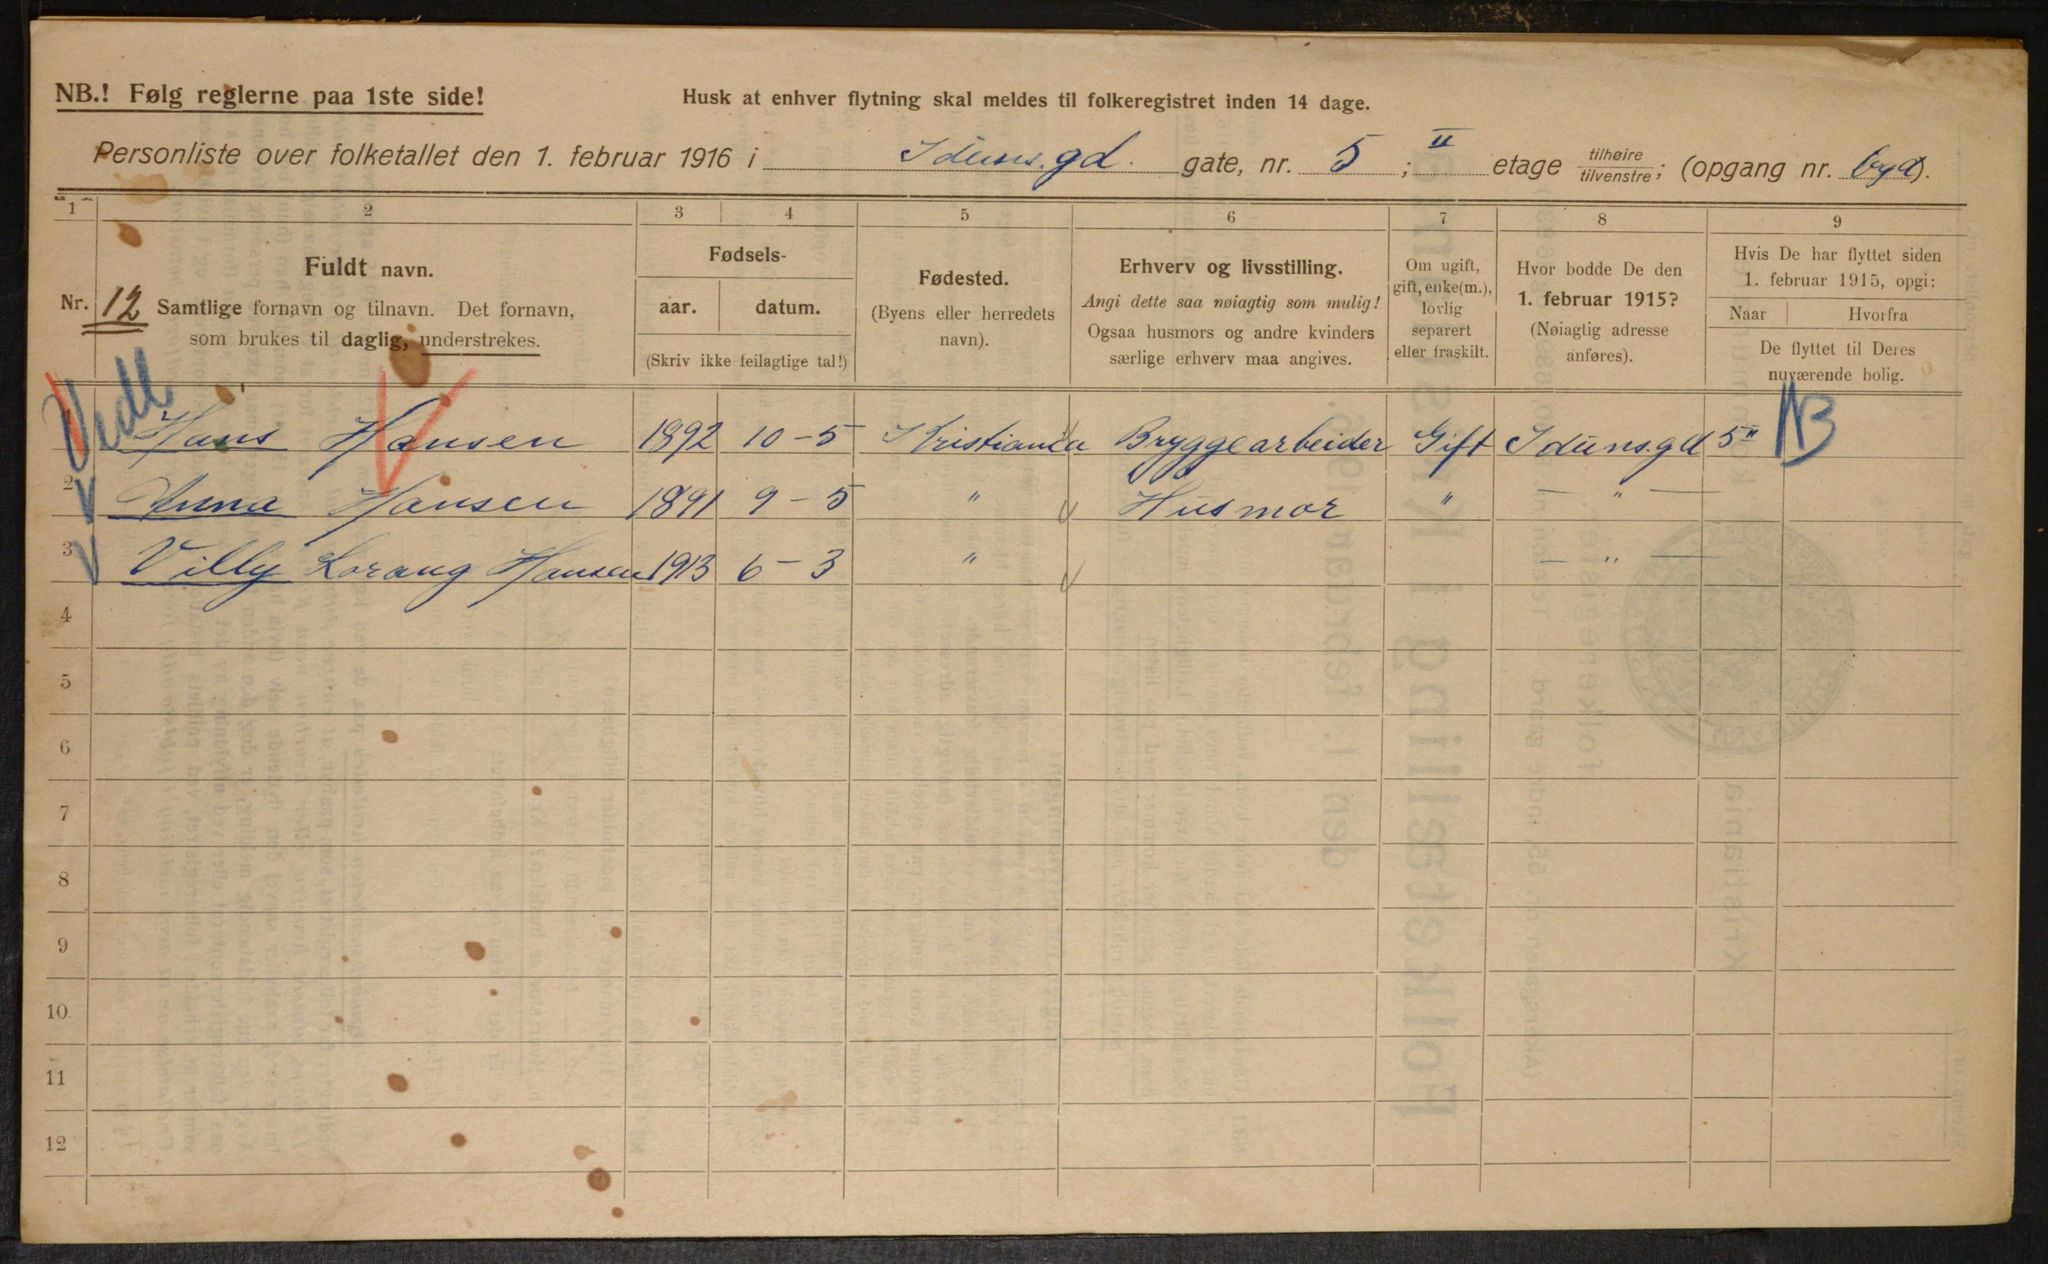 NB.! Følg reglerne paa 1ste side!
Husk at enhver flytning skal meldes til folkeregistret inden 14 dage.
Personliste over folketallet den 1. februar 1916 i Iduns.gd. gate, nr. 5 ; II etage tilhøire tilvenstre ; (opgang nr. byd).
1 2 3 4 5 6 7 8 9
Nr. 12
Fuldt navn.
Samtlige fornavn og tilnavn. Det fornavn,
som brukes til daglig, understrekes.
Fødsels-
aar. datum.
(Skriv ikke feilagtige tal!)
Fødested.
(Byens eller herredets
navn).
Erhverv og livsstilling.
Angi dette saa nøiagtig som mulig!
Ogsaa husmors og andre kvinders
særlige erhverv maa angives.
Om ugift,
gift, enke(m.),
lovlig
separert
eller fraskilt.
Hvor bodde De den
1. februar 1915?
(Nøiagtig adresse
anføres).
Hvis De har flyttet siden
1. februar 1915, opgi:
Naar Hvorfra
De flyttet til Deres
nuværende bolig.
1 Hans Hansen 1892 10-5 Kristiania Bryggearbeider Gift Iduns.gd 5 II NB
2 Anna Hansen 1891 9-5 " Husmor " — " —
3 Villy Lorang Hansen 1913 6-3 " — " —
4
5
6
7
8
9
10
11
12